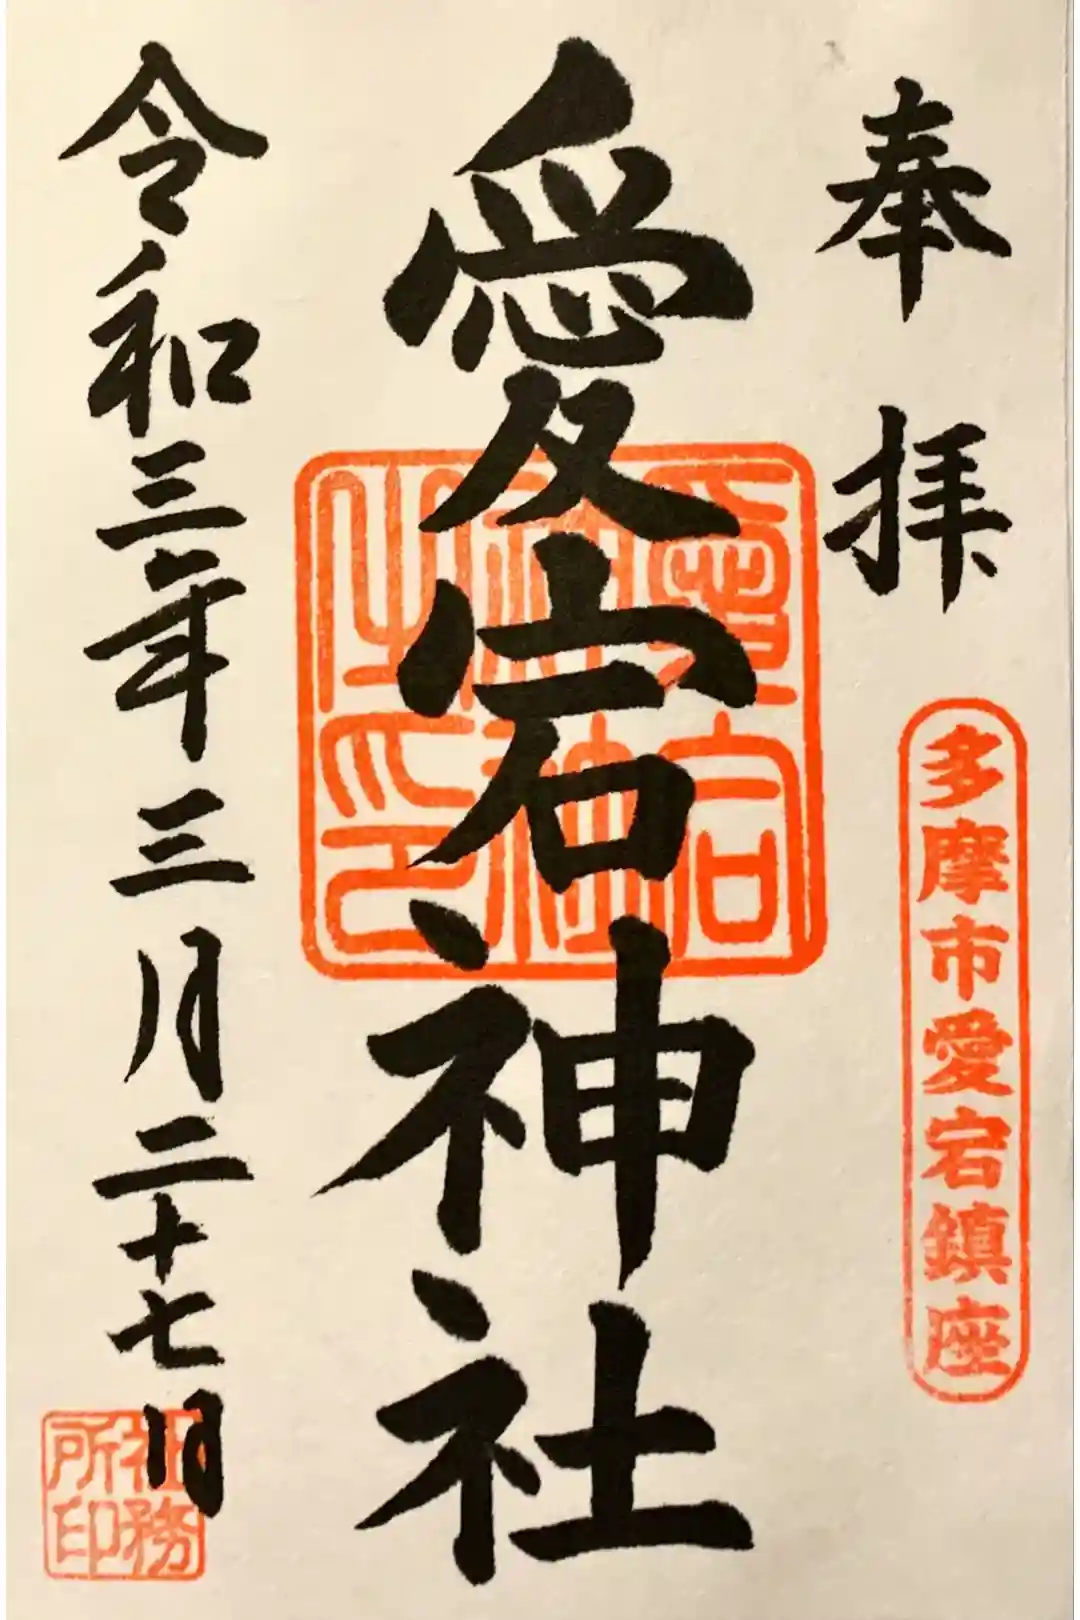 奉拝
多摩市愛宕鎮座
愛宕神社
愛宕神社之印
令和三年三月二十七日
社務所印